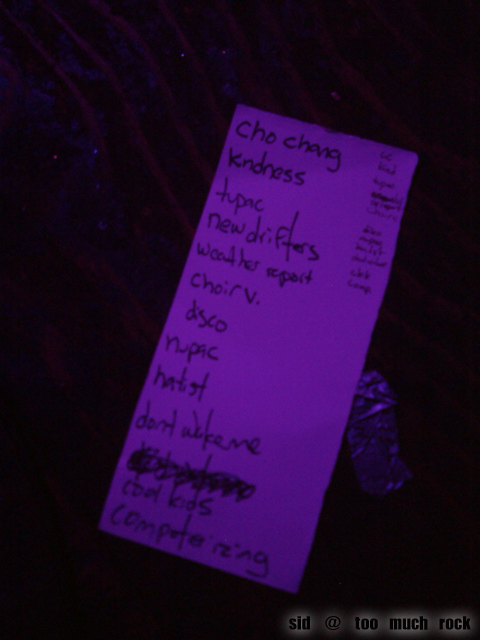 cho chang
kndness
tupac
new drifters
weather report
choir v.
disco
nupac
hatist
dont wake me
cool kids
computerizing
cc
kind
tupac
comp
sid @ too_much_rock